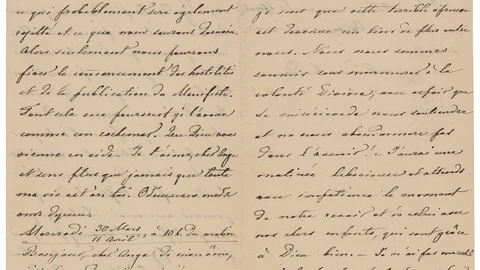 ce qui probablement sera également
rejetté et ce que nous saurons demain.
Alors seulement nous pourrons
fixer le commencement des hostilités
et de la publication du Manifeste.
Tout cela me poursuit, je l'avoue
comme un cochemar. Que Dieu nous
vienne en aide. Je t'aime, cher Ange
et sens plus que jamais que toute
ma vie est en toi.
Mercredi 30 Mars/11 Avril, à 10 h. du matin
Bonjour, cher Ange de mon âme,
que cette terrible épreuve
est devenue un lien de plus entre
nous. Nous nous sommes
soumis sans murmurer à la
volonté Divine, avec espoir que
Sa miséricorde nous soutiendra
et ne nous abandonnera pas
dans l'avenir! – J'aurai une
matinée laborieuse et attends
avec impatience le moment
de notre revoir et je salue avec
nos chers enfants, qui vont grâce
à Dieu bien – Je n'ai pas marché